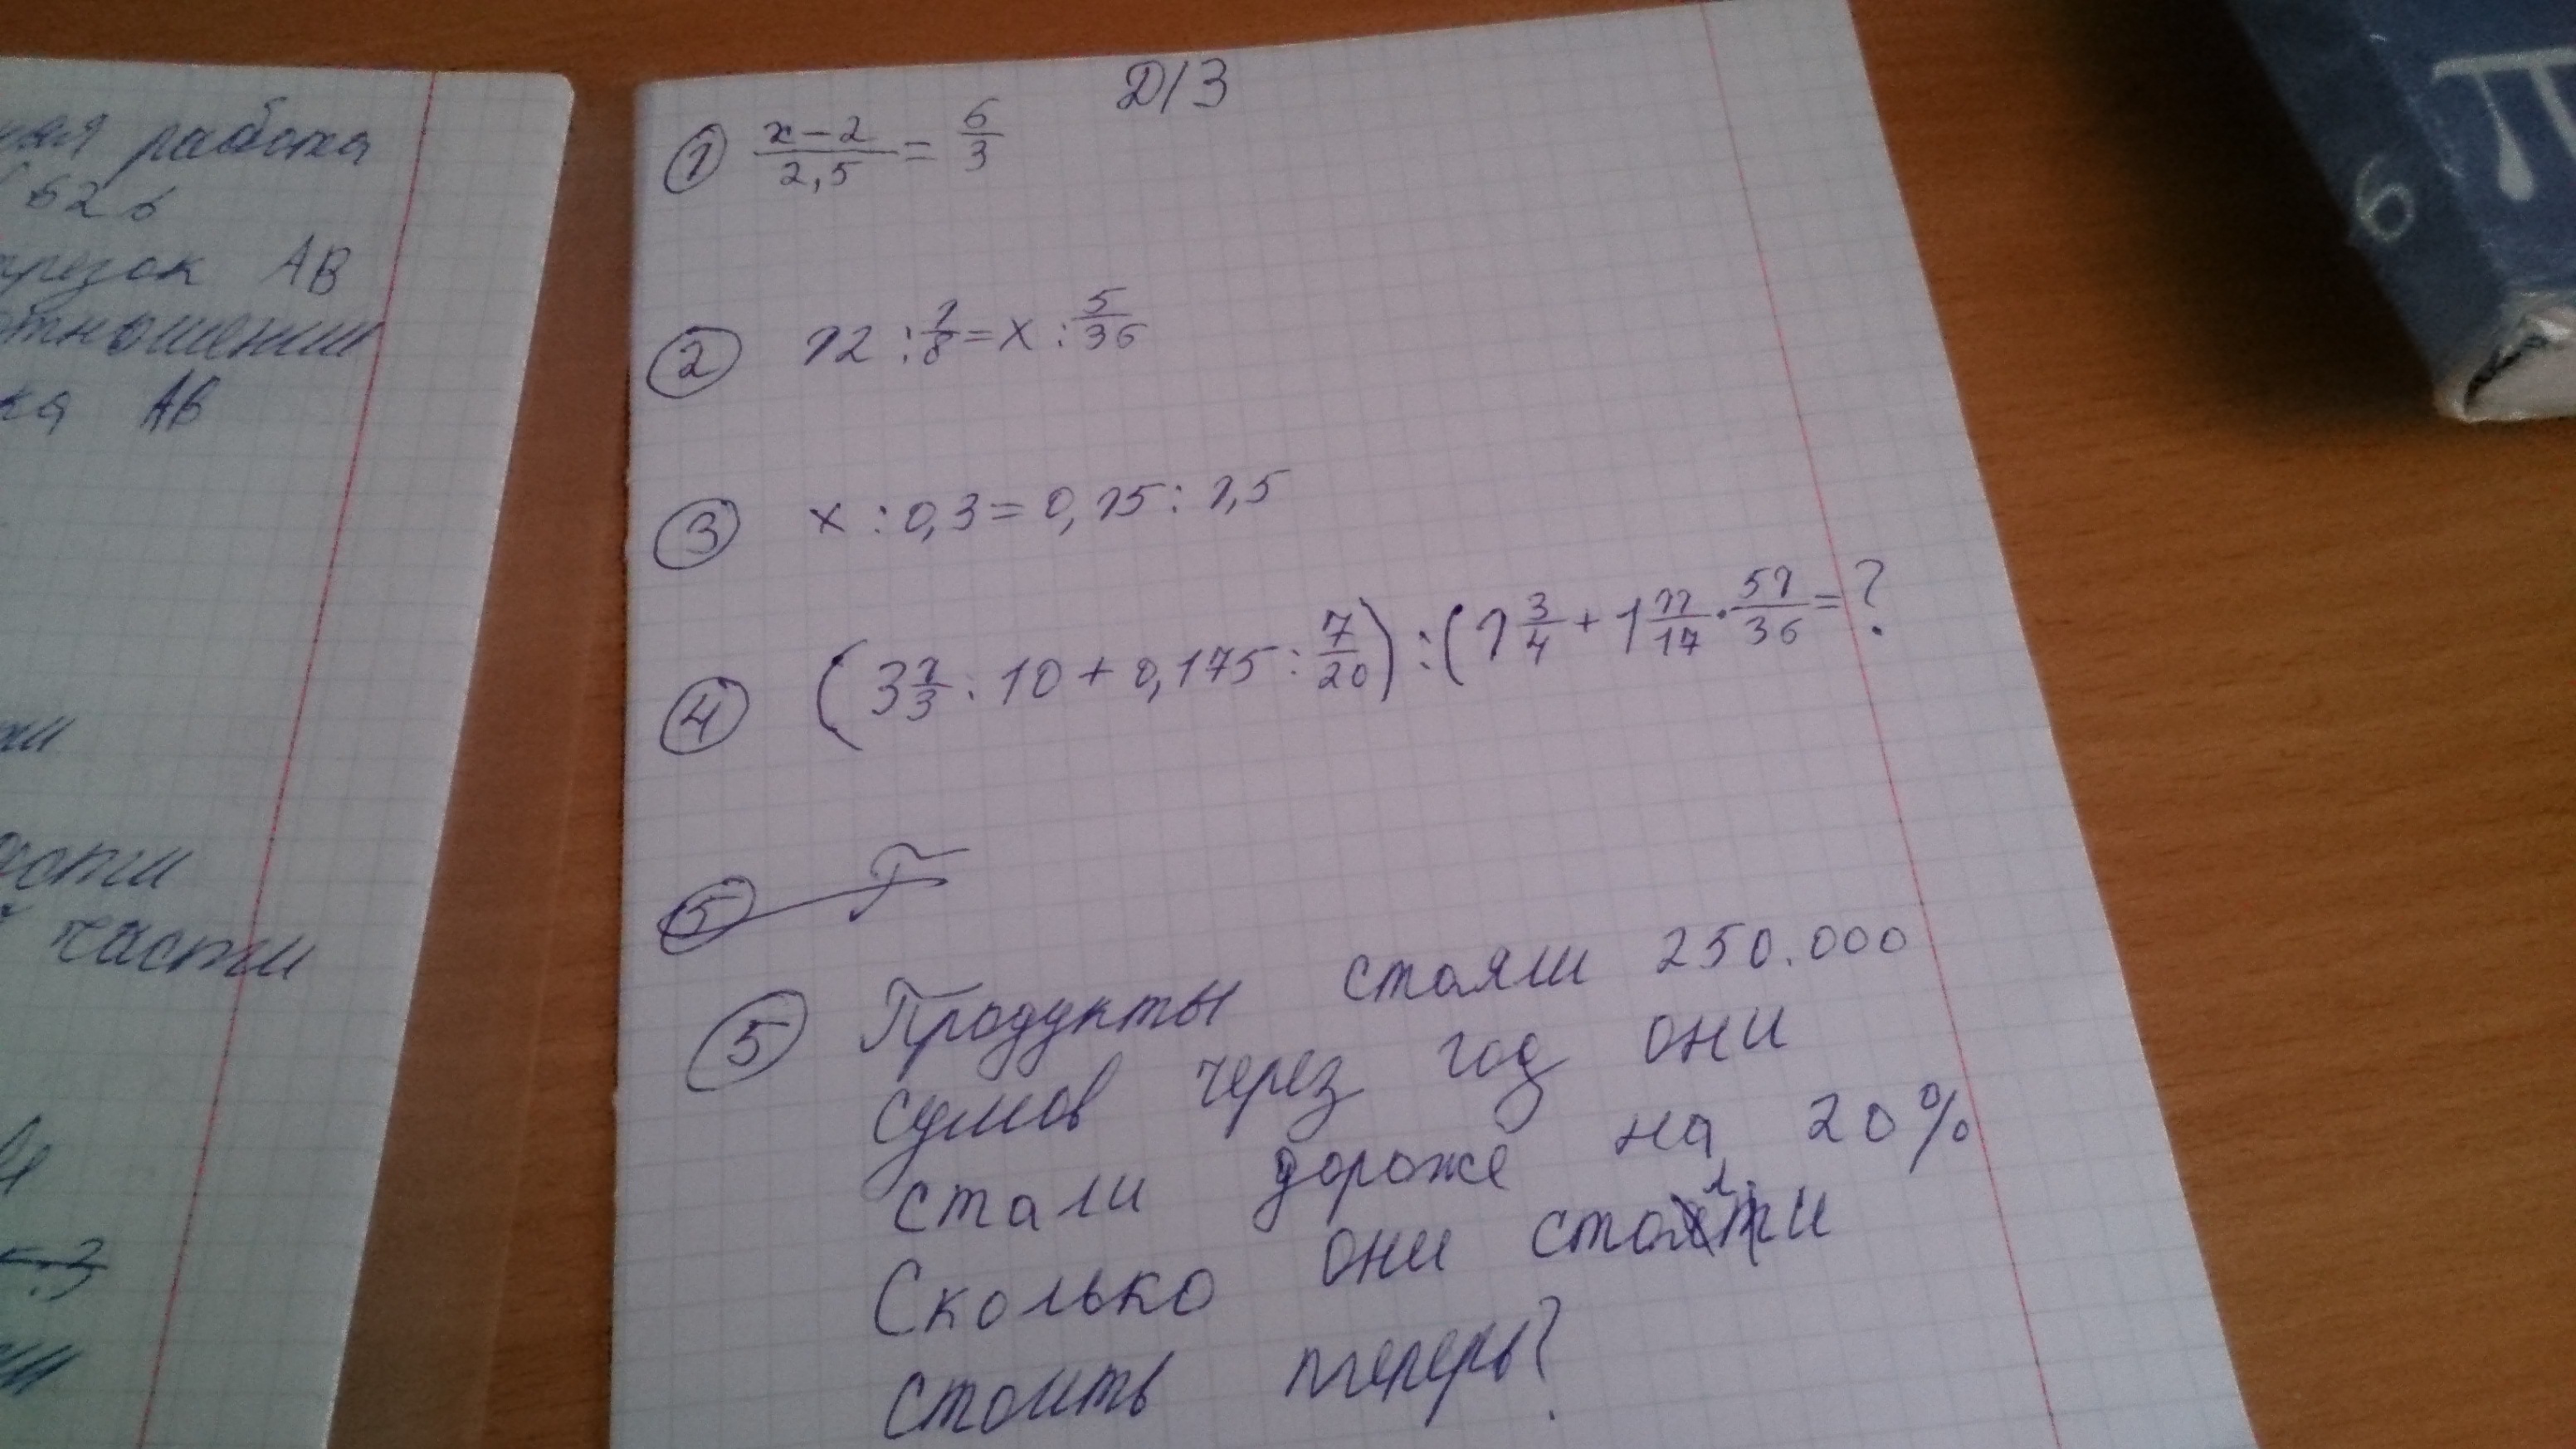 работа
626
АВ
отношении
АВ
части
Д/З
① x-2/2,5 = 6/3
② 12 : 1/8 = x : 5/36
③ x : 0,3 = 0,15 : 1,5
④ (3 1/3 : 10 + 0,175 : 7/20) : (1 3/4 + 1 11/17 · 51/36 = ?
⑤ Продукты стояли 250.000
сумов через год они
стали дороже на 20%
Сколько они стали
стоить теперь?
π
6